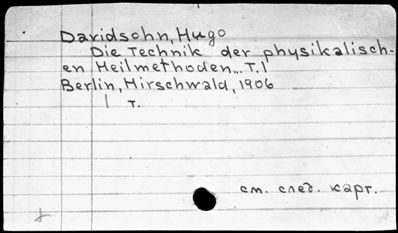 Davidsohn, Hugo
Die Technik der physikalisch-
en Heilmethoden... T.1
Berlin, Hirschwald, 1906
1 т.
см. след. карт.